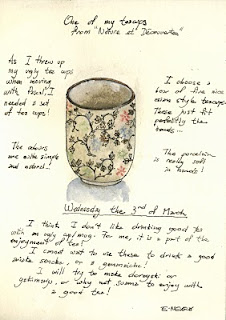 One of my teacups
from "Nature et Découvertes"
As I threw up
my ugly tea cups
when moving
with Pascal, I
needed a set
of tea cups!
The colours
are quite simple
and natural!
I choose a
box of five nice
asian style teacups
These just fit
perfectly the
hands...
The porcelain
is really soft
in hands!
Wednesday the 3rd of March
I think I don't like drinking good tea
with an ugly cup/mug. For me, it is a part of the
enjoyment of tea!
I cannot wait to use these to drink a good
sencha, or a genmaicha!
I will try to make
or why not some to enjoy with
a good tea!